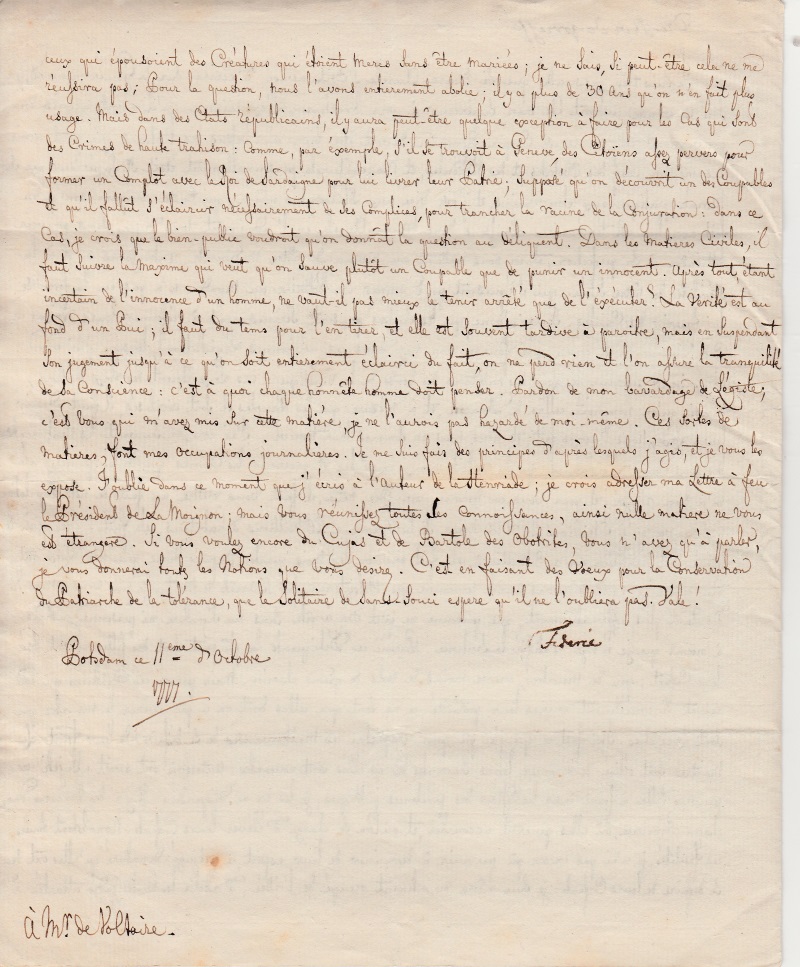 ceux qui épousoient des Créatures qui étoient Meres sans être mariées; je ne sais, si peut-être cela ne me
réussira pas; Pour la question, nous l'avons entierement abolie; il y a plus de 30 Ans qu'on n'en fait plus
usage. Mais dans des Etats Républicains, il y aura peut-être quelque exception à faire pour les Cas qui sont
des Crimes de haute trahison: comme, par exemple, s'il se trouvoit à Geneve, des Citoïens assez pervers pour
former un Complot avec le Roi de Sardaigne pour lui livrer leur Patrie; Supposé qu'on découvrit un des Coupables
et qu'il fallût s'éclaircir nécessairement de ses Complices, pour trancher la racine de la Conjuration: dans ce
Cas, je crois que le bien-public voudroit qu'on donnât la question au déliquent. Dans les Matieres Civiles, il
faut suivre la Maxime qui veut qu'on sauve plutôt un Coupable que de punir un innocent. Après tout, étant
incertain de l'innocence d'un homme, ne vaut-il pas mieux le tenir arrêté que de l'éxécuter? La Verité est au
fond d'un Puic; il faut du tems pour l'en tirer, et elle est souvent tardive à paroitre, mais en Suspendant
Son jugement jusqu'à ce qu'on soit entierement éclairci du fait, on ne perd rien et l'on assure la tranquilité
de sa Conscience: c'est à quoi chaque honnête homme doit penser. Pardon de mon bavardage de Légiste;
c'est Vous qui m'avez mis sur cette matière, je ne l'aurois pas hazardé de moi-même. Ces sortes de
matieres, font mes occupations journalieres. Je me suis fais des principes d'après lesquels j'agis, et je vous les
expose. J'oublie dans ce moment que j'écris à l'Auteur de la Henriade; je crois adresser ma Lettre à feu
le Président de La Moignon; mais Vous réunissez toutes les connoissances, ainsi nulle matiere ne vous
est étrangere. Si vous voulez encore du Cujas et de Bartole des Obotrites, Vous n'avez qu'à parler,
je vous donnerai toutes les Notions que Vous desirez. C'est en faisant des Voeux pour la Conservation
du Patriarche de la tolérance, que le Solitaire de Sans-Souci espere qu'il ne l'oubliera pas. Vale!
Federic
Potsdam ce 11eme d'Octobre
1777.
À Mr. de Voltaire.